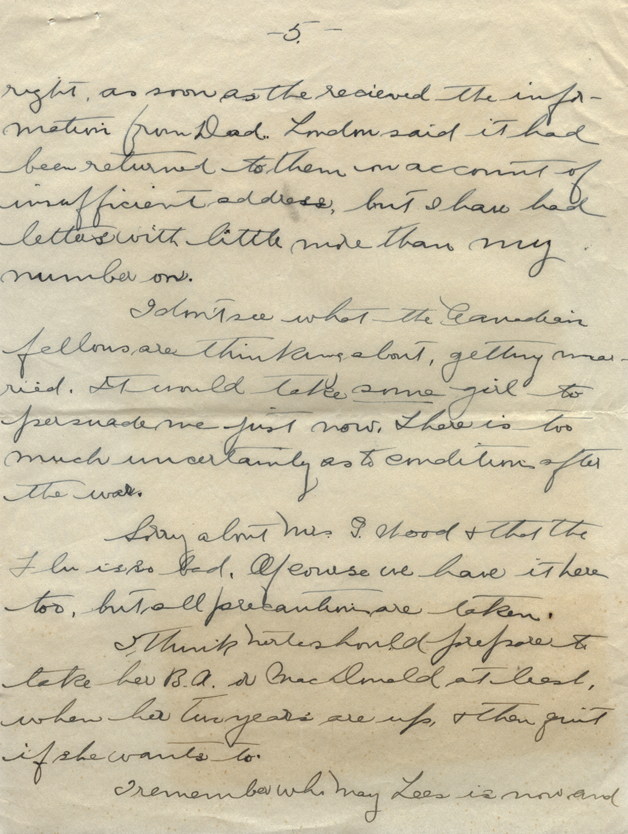 -5-
right, as soon as the recieved the infor-
mation from Dad. London said it had
been returned to them on account of
insufficient address, but I have had
letters with little more than my
number on.
I don't see what the Canadian
fellows are thinking about, getting mar-
ried. It would take some girl to
persuade me just now. There is too
much uncertainty as to conditions after
the war.
Sorry about Mrs. Wood & that the
Flu is so bad. Of course we have it here
too, but all precautions are taken.
I think should prepare to
take her B.A. or MacDonald at least,
when her two years are up, & then quit
if she wants to.
I remember who May Lees is now and